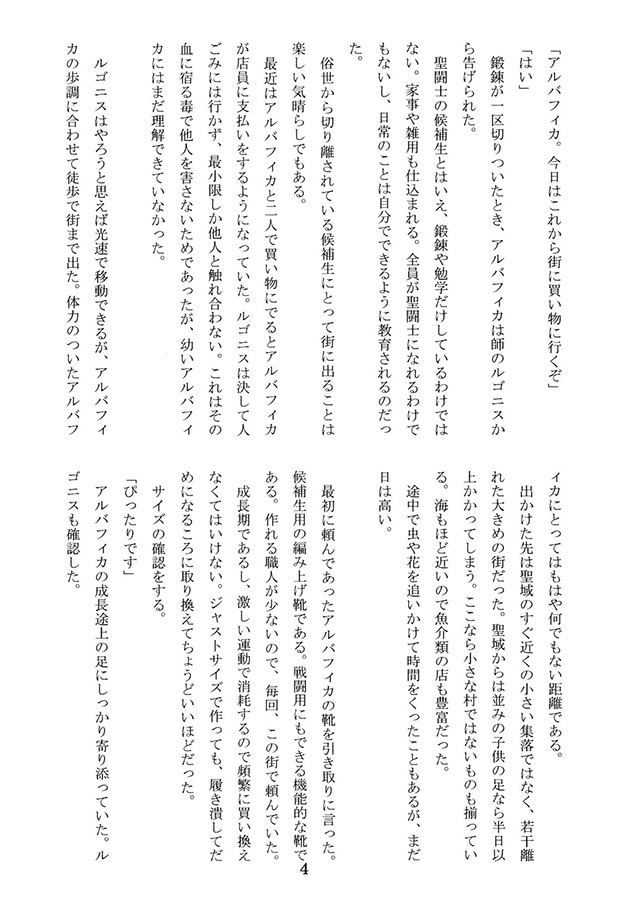 「アルバフィカ。今日はこれから街に買い物に行くぞ」
「はい」
鍛錬が一区切りついたとき、アルバフィカは師のルゴニスか
ら告げられた。
聖闘士の候補生とはいえ、鍛錬や勉学だけしているわけでは
ない。家事や雑用も仕込まれる。全員が聖闘士になれるわけで
もないし、日常のことは自分でできるように教育されるのだっ
た。
俗世から切り離されている候補生にとって街に出ることは
楽しい気晴らしでもある。
最近はアルバフィカと二人で買い物にでるとアルバフィカ
が店員に支払いをするようになっていた。ルゴニスは決して人
ごみには行かず、最小限しか他人と触れ合わない。これはその
血に宿る毒で他人を害さないためであったが、幼いアルバフィ
カにはまだ理解できていなかった。
ルゴニスはやろうと思えば光速で移動できるが、アルバフィ
カの歩調に合わせて徒歩で街まで出た。体力のついたアルバフ
ィカにとってはもはや何でもない距離である。
出かけた先は聖域のすぐ近くの小さい集落ではなく、若干離
れた大きめの街だった。聖域からは並みの子供の足なら半日以
上かかってしまう。ここなら小さな村ではないものも揃ってい
る。海もほど近いので魚介類の店も豊富だった。
途中で虫や花を追いかけて時間をくったこともあるが、まだ
日は高い。
最初に頼んであったアルバフィカの靴を引き取りに言った。
候補生用の編み上げ靴である。戦闘用にもできる機能的な靴で
ある。作れる職人が少ないので、毎回、この街で頼んでいた。
成長期であるし、激しい運動で消耗するので頻繁に買い換え
なくてはいけない。ジャストサイズで作っても、履き潰してだ
めになるころに取り換えてちょうどいいほどだった。
サイズの確認をする。
「ぴったりです」
アルバフィカの成長途上の足にしっかり寄り添っていた。ル
ゴニスも確認した。
4